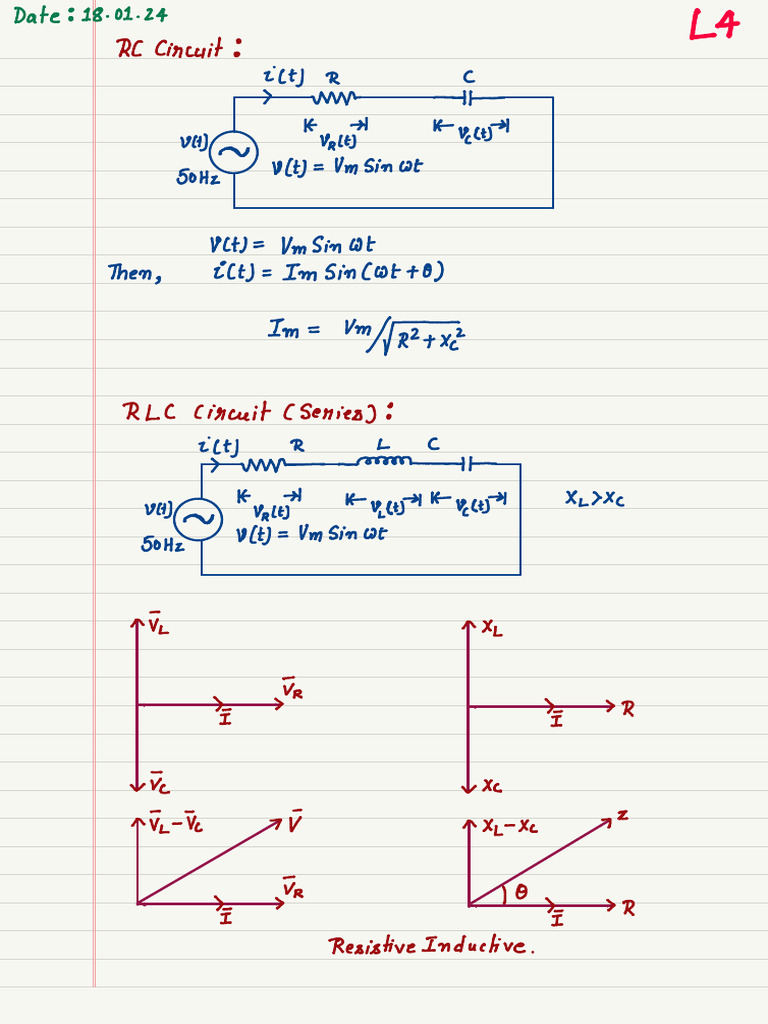 Date: 18.01.24
L4
RC Circuit:
i(t) R C
V_R(t) V_C(t)
v(t)
50Hz
v(t) = Vm Sin ωt
V(t) = Vm Sin ωt
Then, i(t) = Im Sin (ωt + θ)
Im = Vm/√R² + X_C²
RLC Circuit (Series):
i(t) R L C
V_R(t) V_L(t) V_C(t) X_L > X_C
v(t)
50Hz
v(t) = Vm Sin ωt
V̅_L X_L
V̅_R
I̅ I̅ R
V̅_C X_C
V̅_L – V̅_C V̅ X_L – X_C Z
V̅_R θ
I̅ I̅ R
Resistive Inductive.